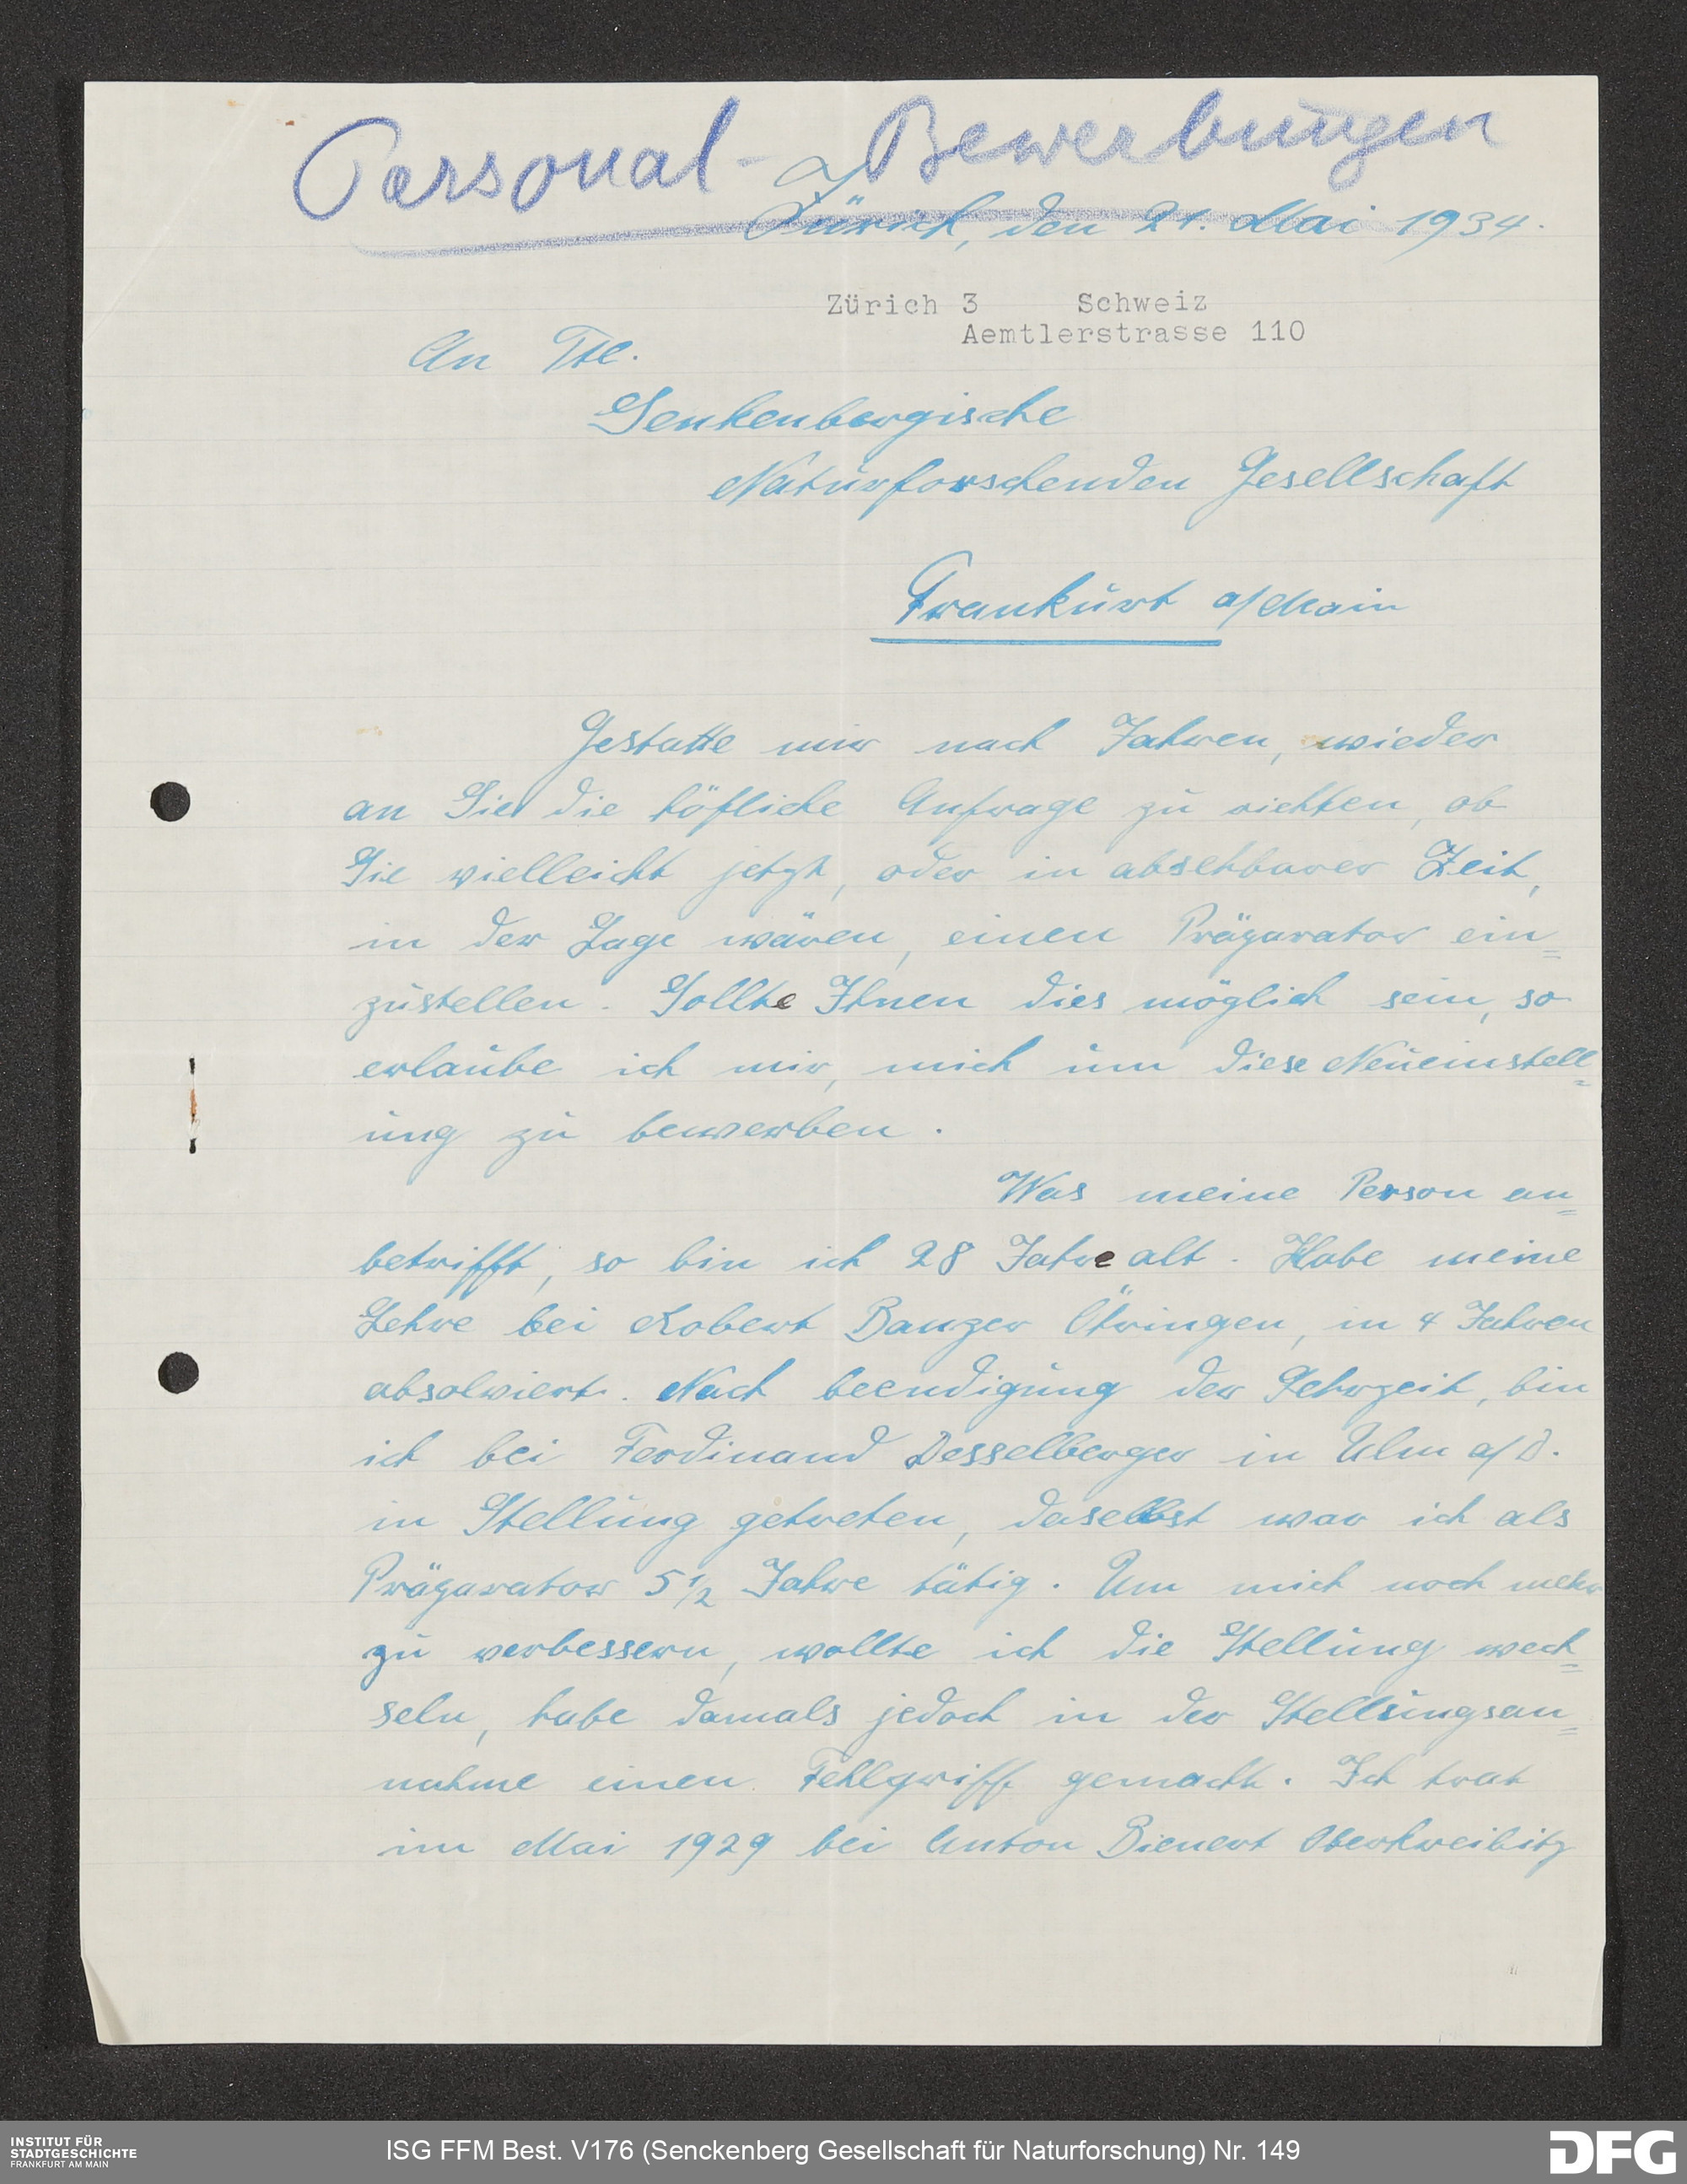 Personal-Bewerbungen
Zürich, den 21. Mai 1934.
Zürich 3 Schweiz
Aemtlerstrasse 110
An Ttl.
Senkenbergische
Naturforschenden Gesellschaft
Frankurt a/Main
Gestatte mir nach Jahren, wieder
an Sie die höfliche Anfrage zu richten, ob
Sie vielleicht jetzt, oder in absehbarer Zeit,
in der Lage wären, einen Präparator ein=
zustellen. Sollte Ihnen dies möglich sein, so
erlaube ich mir, mich um diese Neueinstell=
ung zu bewerben.
Was meine Person an=
betrifft, so bin ich 28 Jahre alt. Habe meine
Lehre bei Robert Banzer Öhringen, in 4 Jahren
absolviert. Nach beendigung der Lehrzeit, bin
ich bei Ferdinand Desselberger in Ulm a/D.
in Stellung getreten, daselbst war ich als
Präparator 5 1/2 Jahre tätig. Um mich noch mehr
zu verbessern, wollte ich die Stellung wech=
seln, habe damals jedoch in der Stellungsan=
nahme einen Fehlgriff gemacht. Ich trat
im Mai 1929 bei Anton Bienert Oberkreibitz
INSTITUT FÜR
STADTGESCHICHTE
FRANKFURT AM MAIN
ISG FFM Best. V176 (Senckenberg Gesellschaft für Naturforschung) Nr. 149
DFG